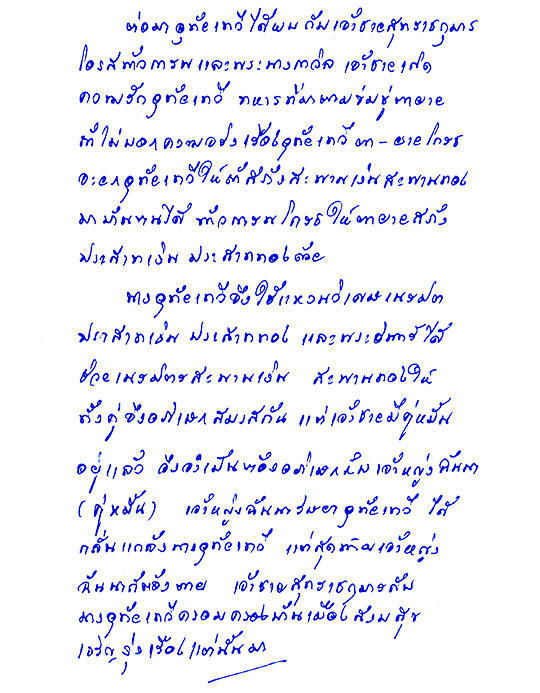 ต่อมาอุทัยเทวีได้พบกับเจ้าชายสุทธราชกุมาร
โอรสท้าวการพ และพระนางกาวิล เจ้าชายเกิด
ความรักอุทัยเทวี ทหารที่มาตามข่มขู่ตายาย
ถ้าไม่บอกความจริงเรื่องอุทัยเทวี ตา-ยายโกรธ
จะยกอุทัยเทวีให้ถ้าสร้างสะพานเงินสะพานทอง
มาบ้านตนได้ ท้าวการพโกรธให้ตายายสร้าง
ปราสาทเงิน ปราสาททองด้วย
นางอุทัยเทวีจึงใช้แหวนวิเศษเนรมิต
ปราสาทเงิน ปราสาททอง และพระอินทร์ได้
ช่วยเนรมิตสะพานเงิน สะพานทองให้
ทั้งคู่จึงอภิเษกสมรสกัน แต่เจ้าชายมีคู่หมั้น
อยู่แล้ว จึงจำเป็นต้องอภิเษกกับเจ้าหญิงฉันนา
(คู่หมั้น) เจ้าหญิงฉันนาริษยาอุทัยเทวี ได้
กลั่นแกล้งนางอุทัยเทวี แต่สุดท้ายเจ้าหญิง
ฉันนาก็ถึงตาย เจ้าชายสุทธราชกุมารกับ
นางอุทัยเทวีครอบครองบ้านเมืองสงบสุข
เจริญรุ่งเรืองแต่นั้นมา